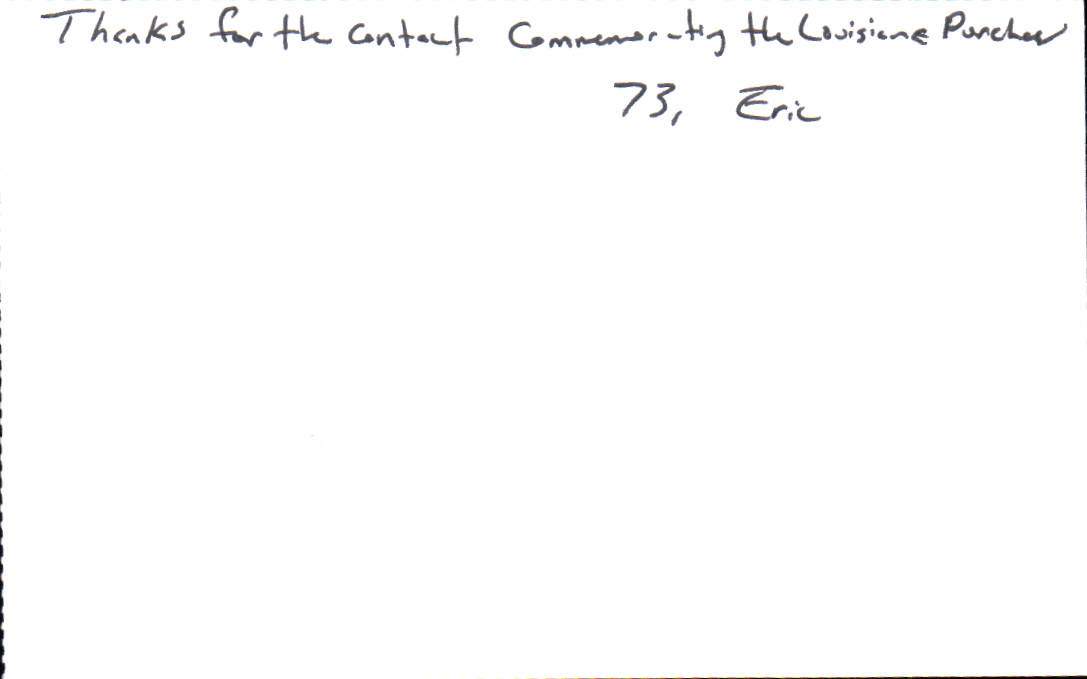 Thanks for the contact Commemorating the Louisiana Purchase
73, Eric